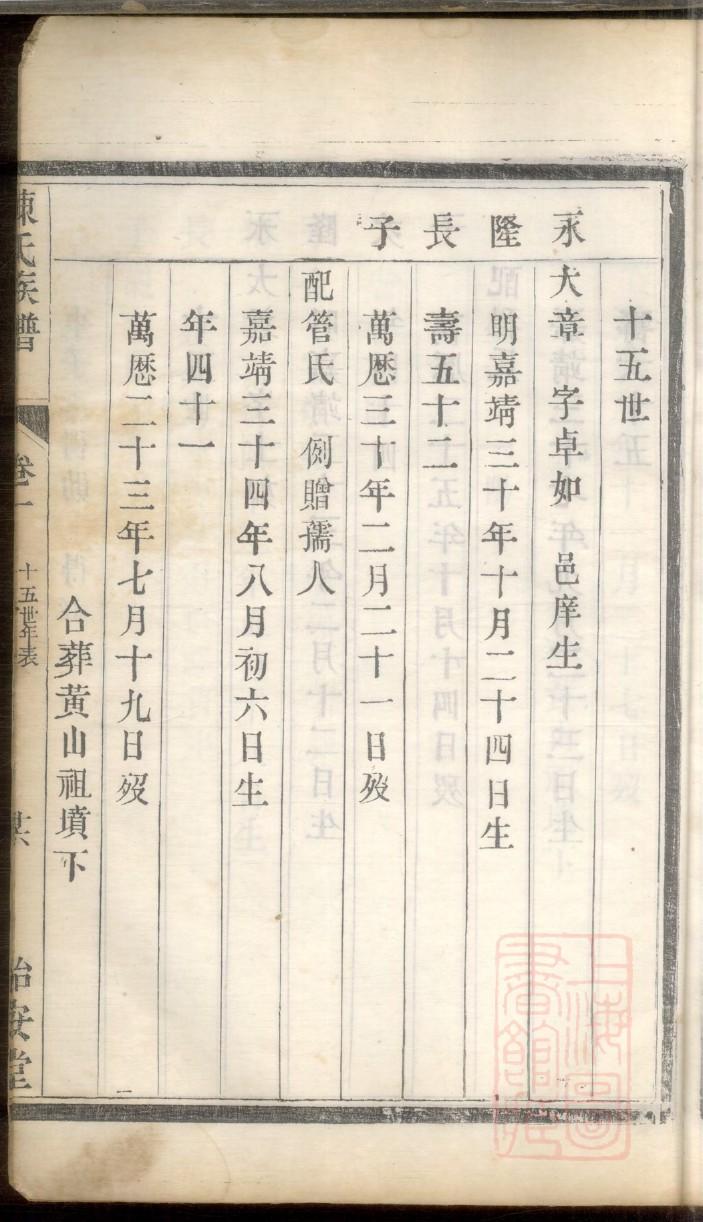 十五世
永隆長子
大章 字卓如 邑庠生
明嘉靖三十年十月二十四日生
壽五十二
萬歷三十年二月二十一日歿
配管氏 例贈孺人
嘉靖三十四年八月初六日生
年四十一
萬歷二十三年七月十九日歿
合葬黃山祖墳下
陳氏族譜 卷一 十五世年表 共 治安堂
上海圖書館藏